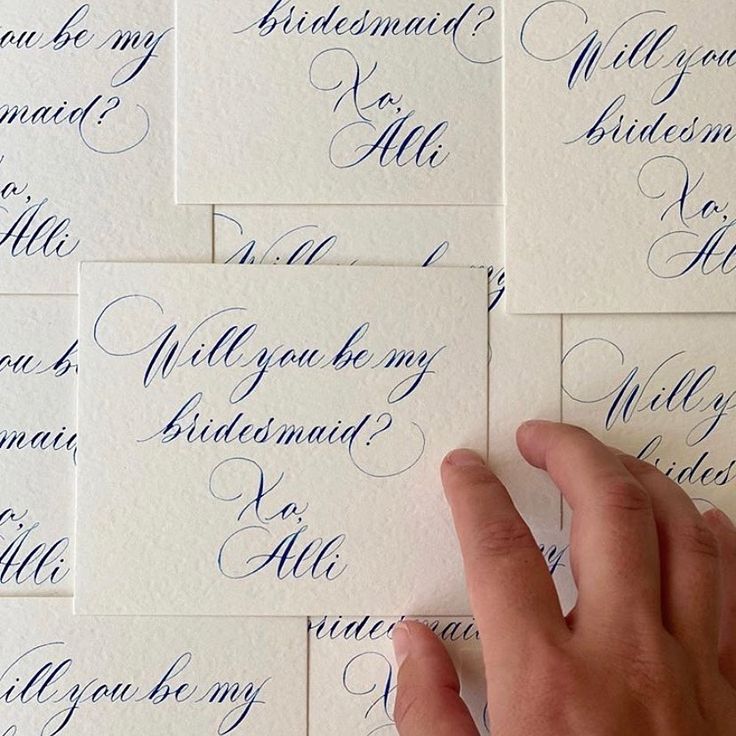 you be my
maid?
Xo,
Alli
bridesmaid?
Xo,
Alli
Will you
bridesm
Xo,
Al
Will you be my
bridesmaid?
Xo,
Alli
you b
maid
Alli
Will y
brides
Will you be my
my